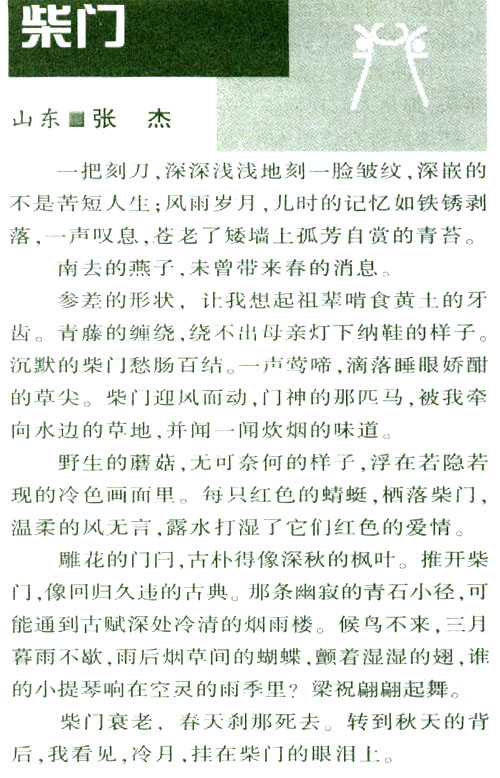 柴门
山东■张 杰
一把刻刀,深深浅浅地刻一脸皱纹,深嵌的
不是苦短人生;风雨岁月,儿时的记忆如铁锈剥
落,一声叹息,苍老了矮墙上孤芳自赏的青苔。
南去的燕子,未曾带来春的消息。
参差的形状，让我想起祖辈啃食黄土的牙
齿。青藤的缠绕,绕不出母亲灯下纳鞋的样子。
沉默的柴门愁肠百结。一声莺啼,滴落睡眼娇酣
的草尖。柴门迎风而动,门神的那匹马,被我牵
向水边的草地,并闻一闻炊烟的味道。
野生的蘑菇,无可奈何的样子,浮在若隐若
现的冷色画面里。每只红色的蜻蜓,栖落柴门,
温柔的风无言,露水打湿了它们红色的爱情。
雕花的门闩,古朴得像深秋的枫叶。推开柴
门,像回归久违的古典。那条幽寂的青石小径,可
能通到古赋深处冷清的烟雨楼。候鸟不来,三月
暮雨不歇,雨后烟草间的蝴蝶,颤着湿湿的翅,谁
的小提琴响在空灵的雨季里？梁祝翩翩起舞。
柴门衰老，春天刹那死去。转到秋天的背
后,我看见,冷月,挂在柴门的眼泪上。